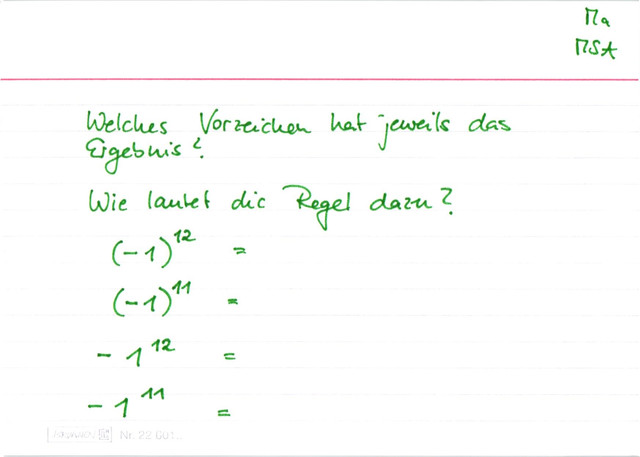 Ma
MSA
Welches Vorzeichen hat jeweils das
Ergebnis?
Wie lautet die Regel dazu?
(-1)¹² =
(-1)¹¹ =
-1¹² =
-1¹¹ =
Nr. 22 601